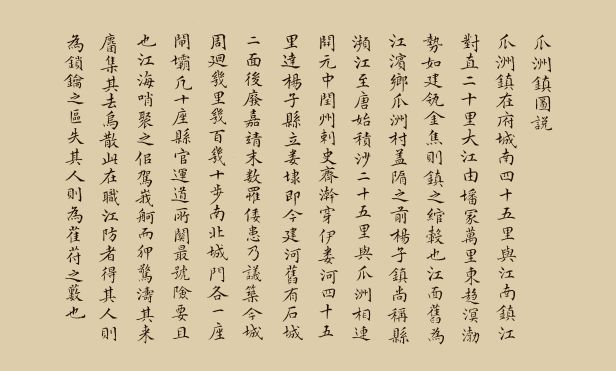 瓜洲鎮圖説
瓜洲鎮在府城南四十五里與江南鎮江
對直二十里大江由墦冢萬里東趋溟渤
勢如建瓴金焦則鎮之綰轂也江面舊為
江濱鄉瓜洲村盖隔之前楊子鎮尚稱縣
瀕江至唐始積沙二十五里與瓜洲相連
開元中閏州刺史齊澣穿伊婁河四十五
里達楊子縣立婁埭即今建河舊有石城
二面後廢嘉靖末数罹倭患乃議築今城
周迴幾里幾百幾十步南北城門各一座
閘壩凢十座縣官運道所関最號險要且
也江海哨聚之佀駕我舸而狎驚濤其来
麕集其去烏散此在職江防者得其人則
為鎖鑰之區失其人則為萑苻之藪也